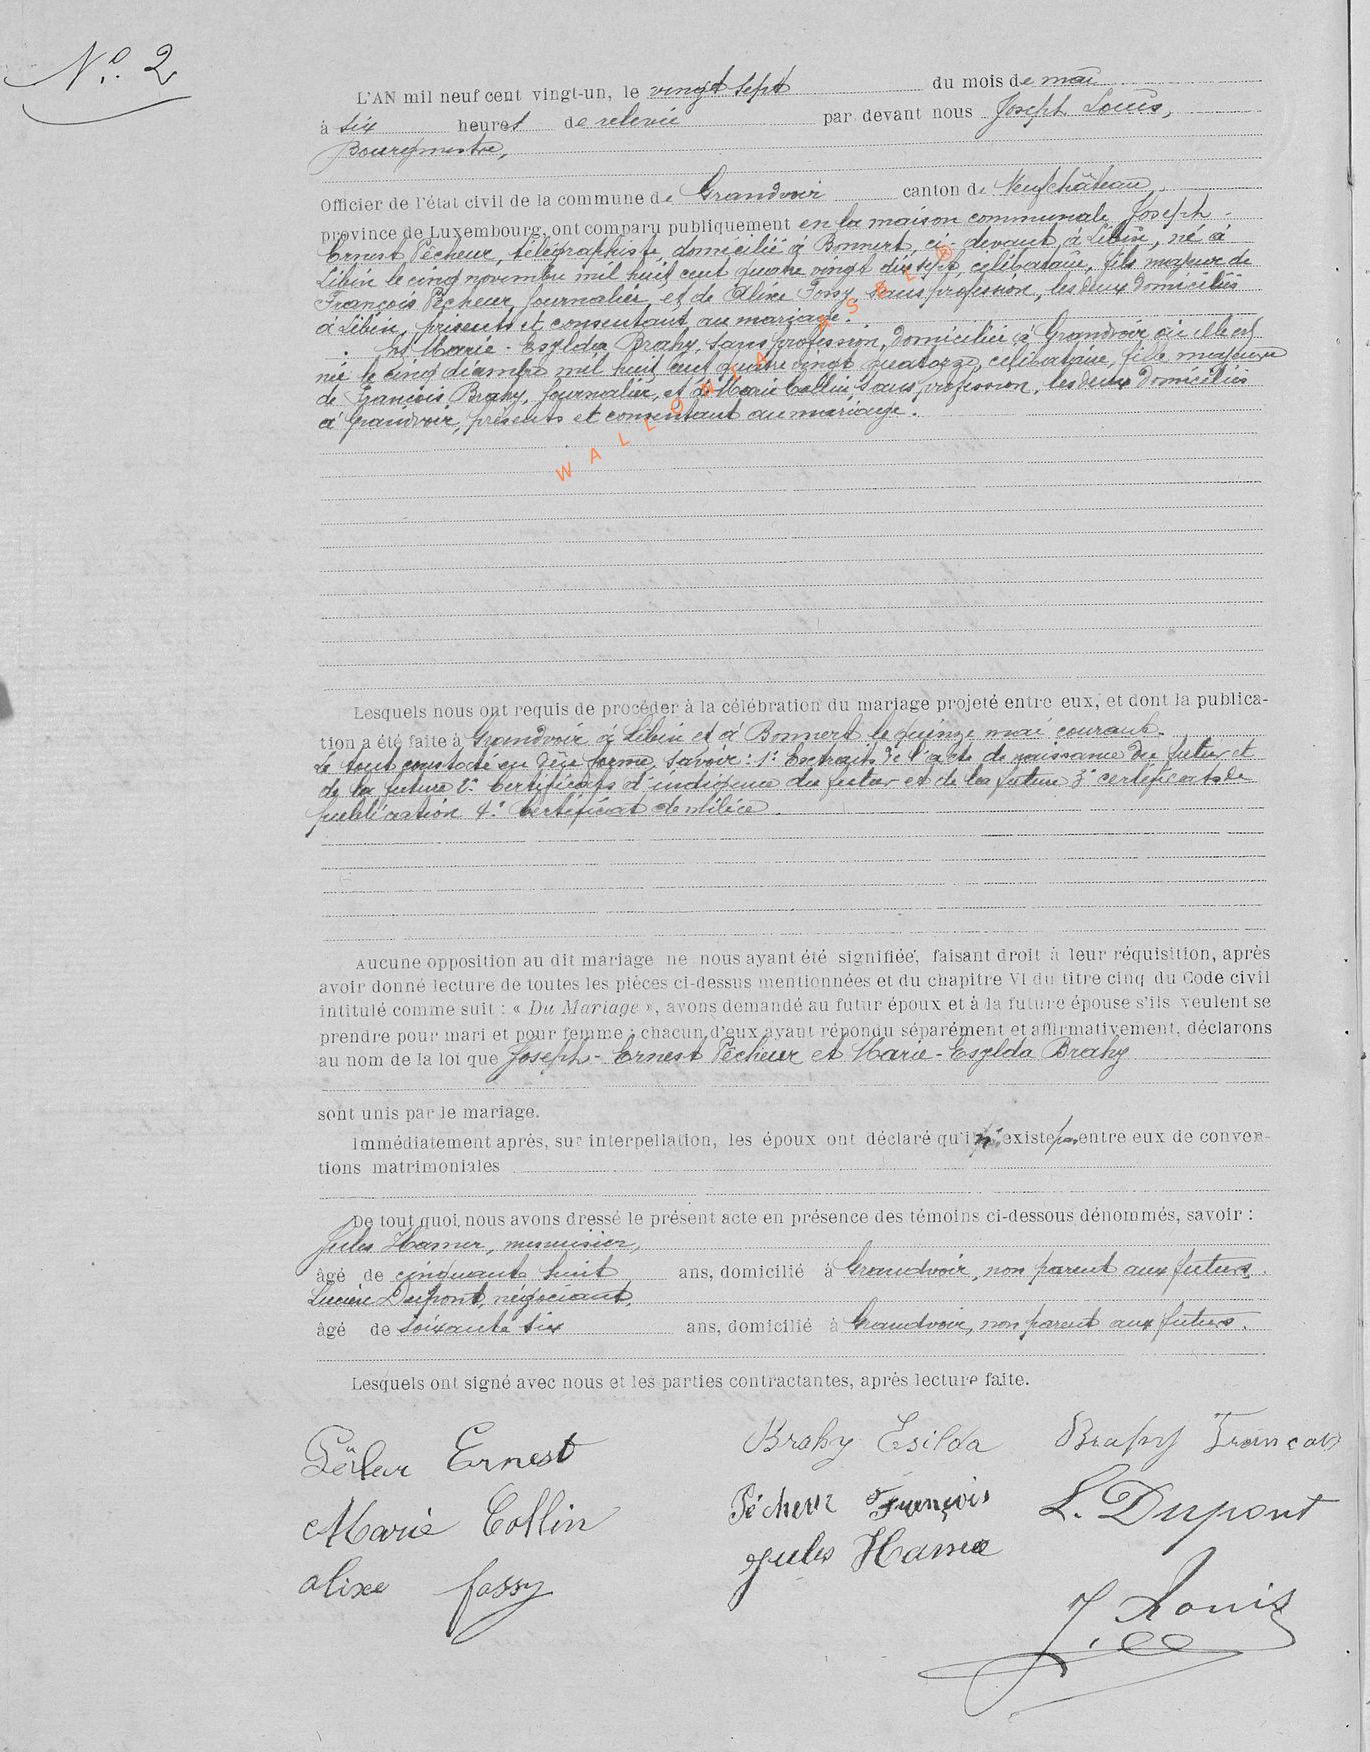 N.º 2
L'AN mil neuf cent vingt-un, le vingt sept du mois de mai
à six heures de relevée par devant nous Joseph Louis,
Bourgmestre,
Officier de l'état civil de la commune de Grandvoir canton de Neufchâteau,
province de Luxembourg, ont comparu publiquement en la maison communale, Joseph-
Ernest Pêcheur, télégraphiste domicilié à Bonnert, ci-devant à Libin, né à
Libin le cinq novembre mil huit cent quatre vingt dix sept, célibataire, fils majeur de
François Pêcheur, journalier, et de Alixe Fossy, sans profession, les deux domiciliés
à Libin, présents et consentant au mariage.
Et Marie-Esylda Brahy, sans profession, domiciliée à Grandvoir où elle est
née le cinq décembre mil huit cent quatre vingt quatorze, célibataire, fille majeure
de François Brahy, journalier, et de Marie Collin, sans profession, les deux domiciliés
à Grandvoir, présents et consentant au mariage.
WALLONIA ASBL ®
Lesquels nous ont requis de procéder à la célébration du mariage projeté entre eux, et dont la publica-
tion a été faite à Grandvoir à Libin et à Bonnert le quinze mai courant.
Le tout constaté en due forme, savoir : 1º Extraits de l'acte de naissance du futur et
de la future 2º Certificats d'indigence du futur et de la future 3º certificats de
publication 4º Certificat de milice
Aucune opposition au dit mariage ne nous ayant été signifiée, faisant droit à leur réquisition, après
avoir donné lecture de toutes les pièces ci-dessus mentionnées et du chapitre VI du titre cinq du Code civil
intitulé comme suit : « Du Mariage », avons demandé au futur époux et à la future épouse s'ils veulent se
prendre pour mari et pour femme ; chacun d'eux ayant répondu séparément et affirmativement, déclarons
au nom de la loi que Joseph-Ernest Pêcheur et Marie-Esylda Brahy
sont unis par le mariage.
Immédiatement après, sur interpellation, les époux ont déclaré qu'il n'existe pas entre eux de conven-
tions matrimoniales
De tout quoi, nous avons dressé le présent acte en présence des témoins ci-dessous dénommés, savoir :
Jules Hamer, menuisier,
âgé de cinquante huit ans, domicilié à Grandvoir, non parent aux futurs.
Lucien Dupont, négociant,
âgé de soixante six ans, domicilié à Grandvoir, non parent aux futurs.
Lesquels ont signé avec nous et les parties contractantes, après lecture faite.
Ernest Brahy Esilda Brahy Francois
Marie Collin Pêcheur François L. Dupont
alixe fossy Jules Hamer
J. Louis